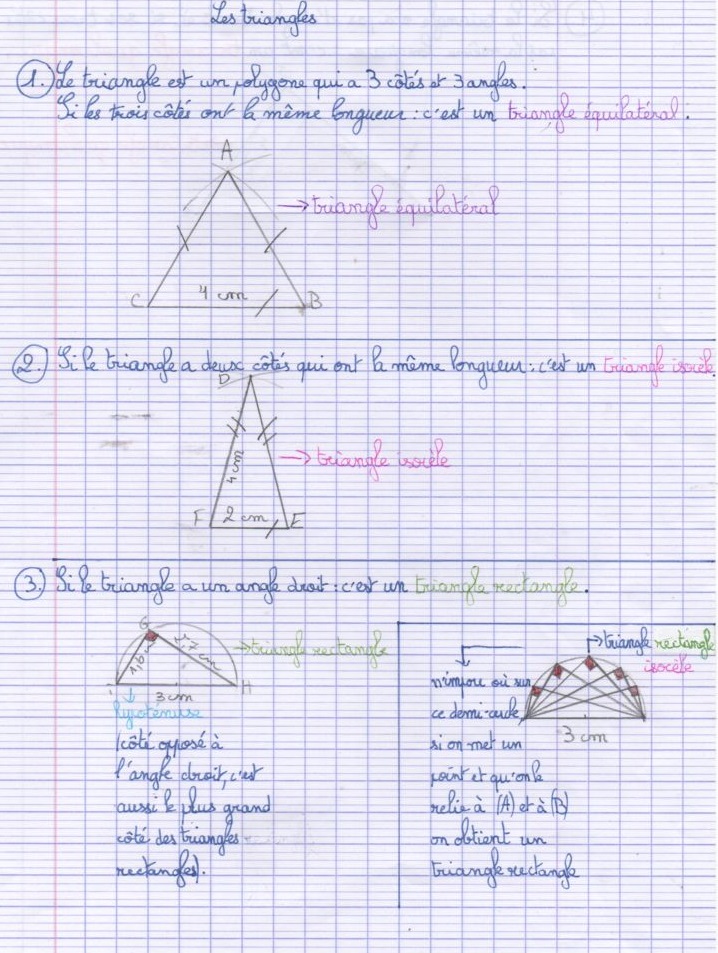 Les triangles
1. Le triangle est un polygone qui a 3 côtés et 3 angles.
Si les trois côtés ont la même longueur : c'est un triangle équilatéral.
A
→ triangle équilatéral
C 4 cm B
2. Si le triangle a deux côtés qui ont la même longueur : c'est un triangle isocèle.
D
4 cm
→ triangle isocèle
F 2 cm E
3. Si le triangle a un angle droit : c'est un triangle rectangle.
G
1,6 cm 2,7 cm
→ triangle rectangle
3 cm H
hypoténuse
(côté opposé à
l'angle droit, c'est
aussi le plus grand
côté des triangles
rectangles).
→ triangle rectangle
isocèle
n'importe où sur
ce demi-cercle
si on met un
point et qu'on le
relie à (A) et à (B)
on obtient un
triangle rectangle
3 cm